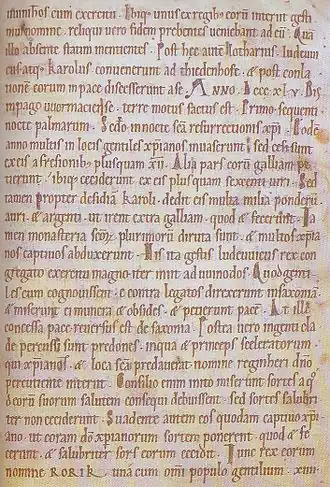 istunthos cum exercitu. Ibiq; unus ex regib; eorū interiit gesti
mus nomine. reliqui vero fidem prebentes veniebant ad eū. Quā
illo absente statim mentientes. Post hec autē Lotharius. ludewi
cus atq; karolus convenerunt ad thiedenhofe. & post conla
tionē eorum in pace discesserunt a se. ANNO. DCCC. XL. V. Bis
in pago wormacinse. terre motus factus est. Primo sequenti
nocte palmarum. Scdō in nocte scā resurrectionis xp̄i. Eodē
anno multis in locis gentiles xp̄ianos invaserunt. sed cesi sunt
ex eis a fresionib; plusquam xii. Alia pars eorū galliam pe
tierunt. ibiq; ceciderunt ex eis plusquam sexcenti viri. Sed
tamen propter desidiā karoli. dedit eis multa milia ponderū
auri. & argenti. ut irent extra galliam. quod & fecerunt. Ta
men monasteria scōꝝ plurimorū diruta sunt. & multos xp̄ia
nos captivos abduxerunt. His ita gestis ludewicus rex con
gregato exercitu magno. iter iniit ad winodos. Quod genti
les cum cognovissent. e contra legatos direxerunt in saxoniā.
& miserunt ei munera & obsides. & petierunt pacē. At ille
concessa pace reversus est de saxonia. Postea vero ingenti cla
de percussi sunt predones. in qua & princeps sceleratorum.
qui xp̄ianos. & loca scā predaverat nomine reginheri dn̄o
percutiente interiit. Consilio enim inito miserunt sortes a q̄
deorū suorum salutem consequi debuissent. sed sortes salubri
ter non ceciderunt. Suadente autem eos quodam captivo xp̄i
ano. ut coram dō xp̄ianorum sortem ponerent. quod & fe
cerunt. & salubriter sors eorum cecidit. Tunc rex eorum
nomine RORIK. unā cum omi populo gentilium. xiiii